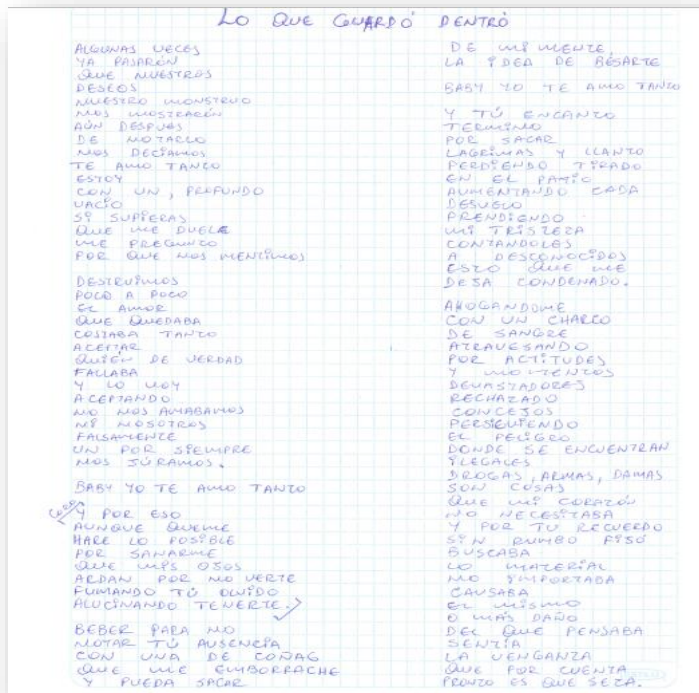 LO QUE GUARDÓ DENTRÓ
ALGUNAS VECES
YA PASARÓN
QUE NUESTROS
DESEOS
NUESTRO MONSTRUO
NOS MOSTRARÓN
AÚN DESPUES
DE NOTARLO
NOS DECÍAMOS
TE AMO TANTO
ESTOY
CON UN, PROFUNDO
VACÍO
SI SUPIERAS
QUE ME DUELE
ME PREGUNTO
POR QUE NOS MENTIMOS
DESTRUIMOS
POCO A POCO
EL AMOR
QUE QUEDABA
COSTABA TANTO
ACEPTAR
QUIÉN DE VERDAD
FALLABA
Y LO VOY
ACEPTANDO
NO NOS AMABAMOS
NI NOSOTROS
FALSAMENTE
UN POR SIEMPRE
NOS JÚRAMOS.
BABY YO TE AMO TANTO
CORO
Y POR ESO
AUNQUE QUEME
HARE LO POSIBLE
POR SANARME
QUE MIS OJOS
ARDAN POR NO VERTE
FUMANDO TÚ OLVIDO
ALUCINANDO TENERTE.
BEBER PARA NO
NOTAR TÚ AUSENCIA
CON UNA DE COÑAG
QUE ME EMBORRACHE
Y PUEDA SACAR
DE MI MENTE
LA IDEA DE BESARTE
BABY YO TE AMO TANTO
Y TÚ ENCANTO
TERMINO
POR SACAR
LAGRIMAS Y LLANTO
PERDIENDO TIRADO
EN EL PANICO
AUMENTANDO CADA
DESVELO
PRENDIENDO
MI TRISTEZA
CONTANDOLES
A DESCONOCIDOS
ESTO QUE ME
DEJA CONDENADO.
AHOGANDOME
CON UN CHARCO
DE SANGRE
ATRAVESANDO
POR ACTITUDES
Y MOMENTOS
DEVASTADORES
RECHAZADO
CONCEJOS
PERSIGUIENDO
EL PELIGRO
DONDE SE ENCUENTRAN
ILEGALES
DROGAS, ARMAS, DAMAS
SON COSAS
QUE MI CORAZÓN
NO NECESITABA
Y POR TU RECUERDO
SIN RUMBO FIJO
BUSCABA
LO MATERIAL
NO IMPORTABA
CAUSABA
EL MISMO
O MÁS DAÑO
DEL QUE PENSABA
SENTÍA
LA VENGANZA
QUE POR CUENTA
PRONTO ES QUE SETA.